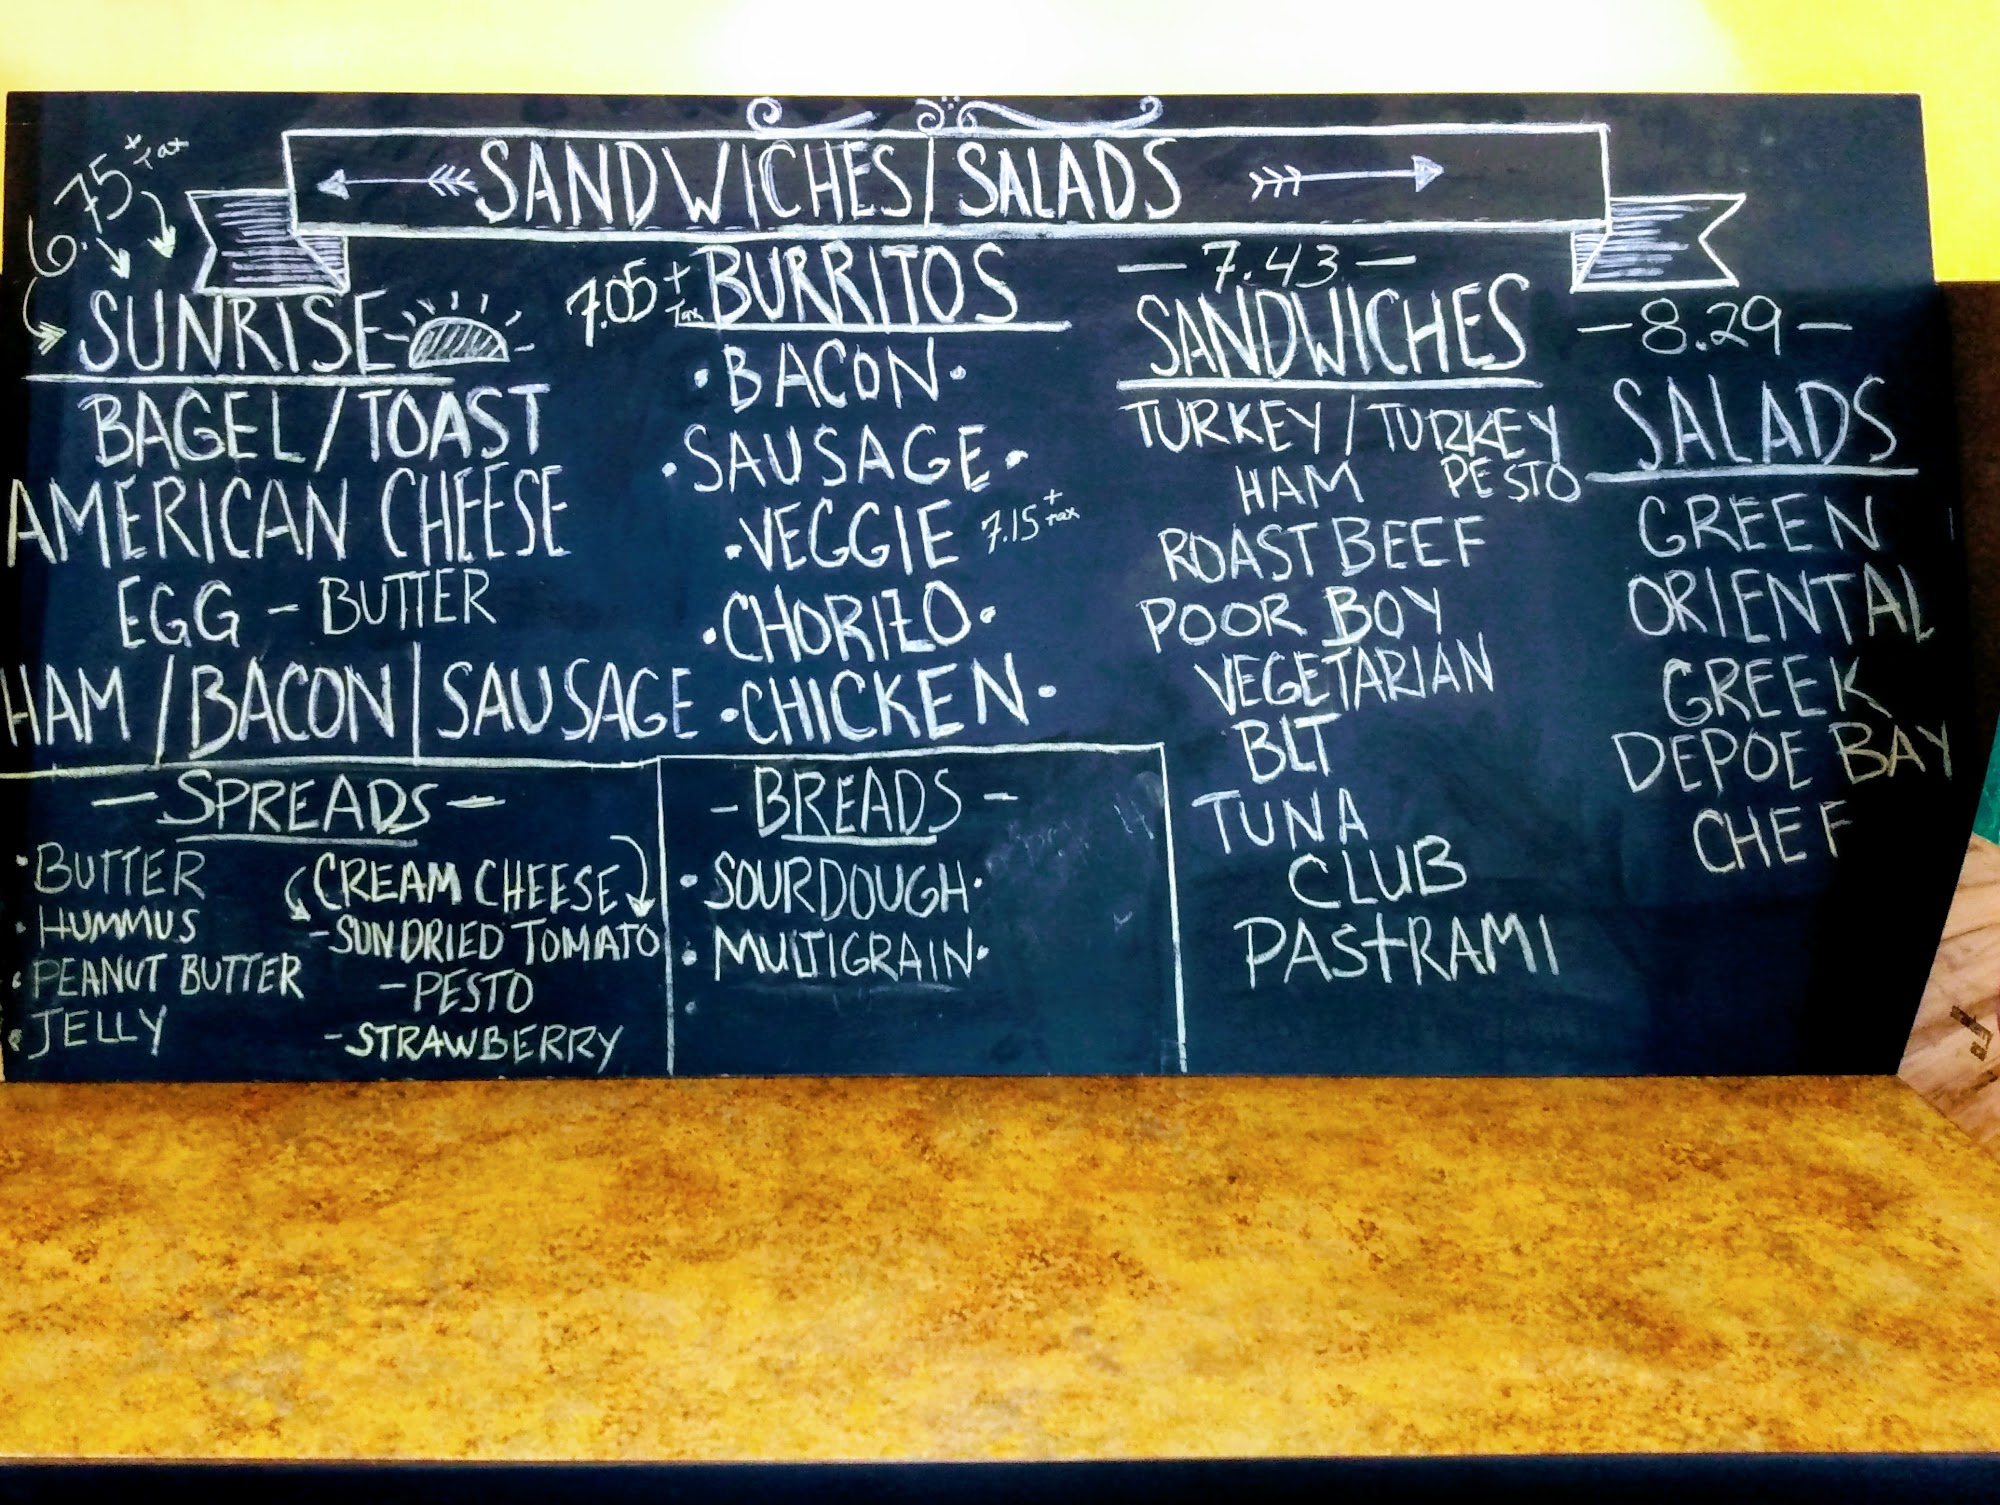 SANDWICHES | SALADS
6.75 + Tax
SUNRISE
BAGEL/TOAST
AMERICAN CHEESE
EGG - BUTTER
HAM / BACON | SAUSAGE
7.05 + Tax BURRITOS
• BACON •
• SAUSAGE •
• VEGGIE 7.15 + Tax
• CHORIZO •
• CHICKEN •
- 7.43 -
SANDWICHES
TURKEY / TURKEY PESTO
HAM
ROAST BEEF
POOR BOY
VEGETARIAN
BLT
TUNA
CLUB
PASTRAMI
- 8.29 -
SALADS
GREEN
ORIENTAL
GREEK
DEPOE BAY
CHEF
- SPREADS -
• BUTTER
• HUMMUS
• PEANUT BUTTER
• JELLY
CREAM CHEESE
- SUNDRIED TOMATO
- PESTO
- STRAWBERRY
- BREADS -
• SOURDOUGH •
• MULTIGRAIN •